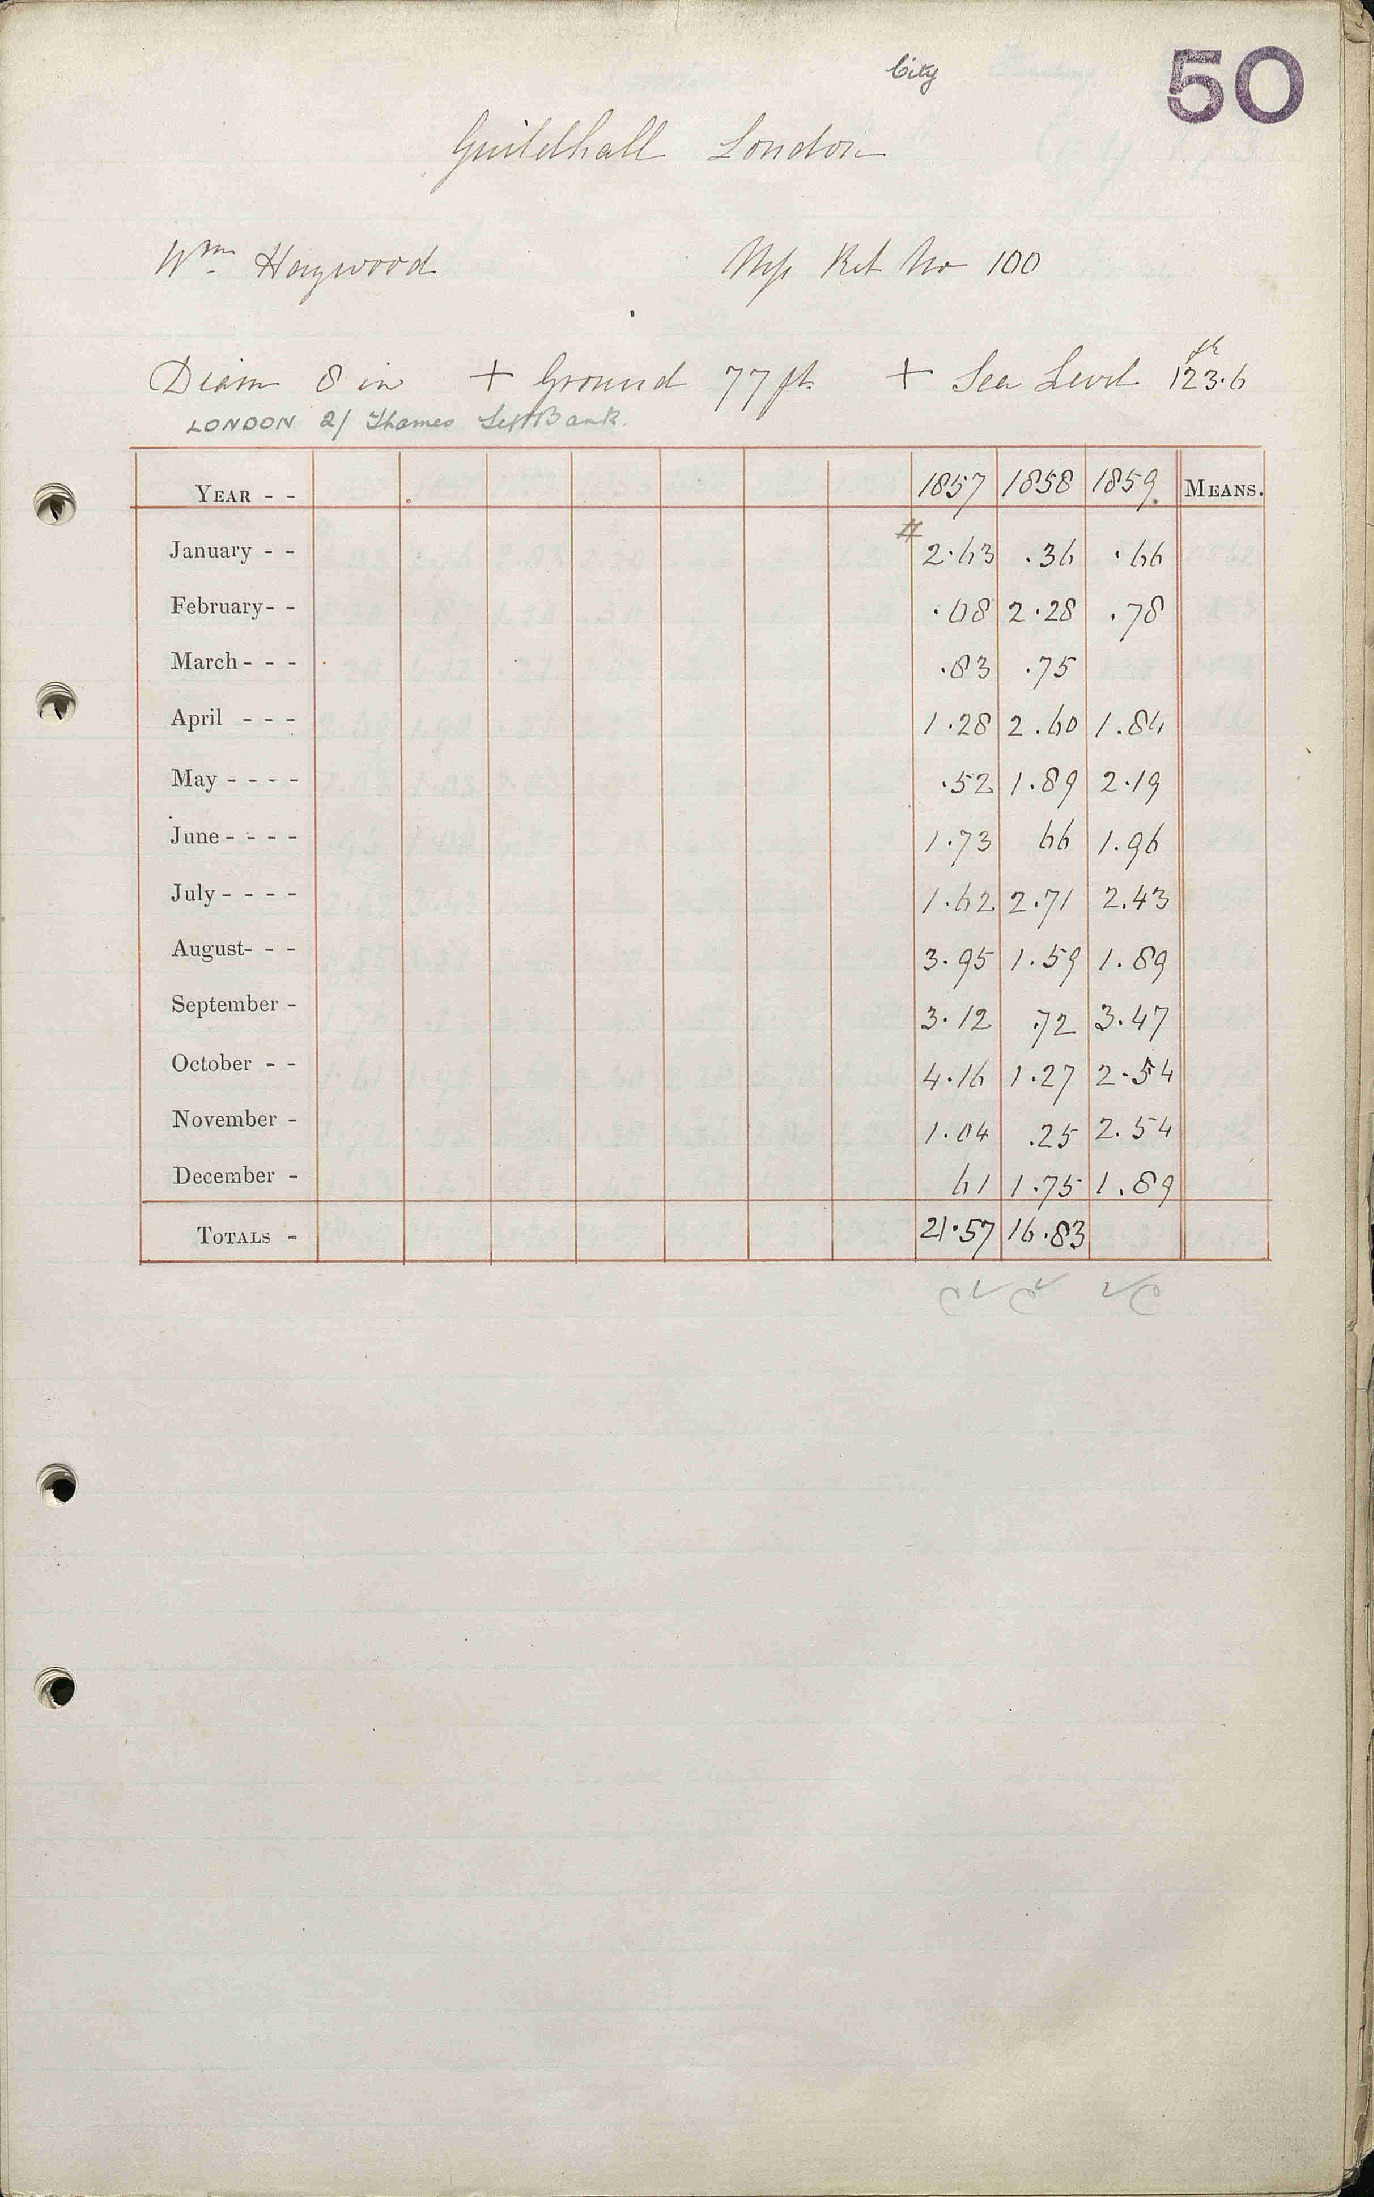 City 50
Guildhall London
Wm Haywood Ret No 100
Diam 8 in + Ground 77 ft + Sea Level 123.6 ft
LONDON 2/ Thames Left Bank.
YEAR - - 1857 1858 1859 MEANS.
January - - # 2.63 .36 .66
February - - .08 2.28 .78
March - - - .83 .75
April - - - 1.28 2.60 1.84
May - - - - .52 1.89 2.19
June - - - - 1.73 66 1.96
July - - - - 1.62 2.71 2.43
August - - - 3.95 1.59 1.89
September - 3.12 .72 3.47
October - - 4.16 1.27 2.54
November - 1.04 .25 2.54
December - 61 1.75 1.89
TOTALS - 21.57 16.83